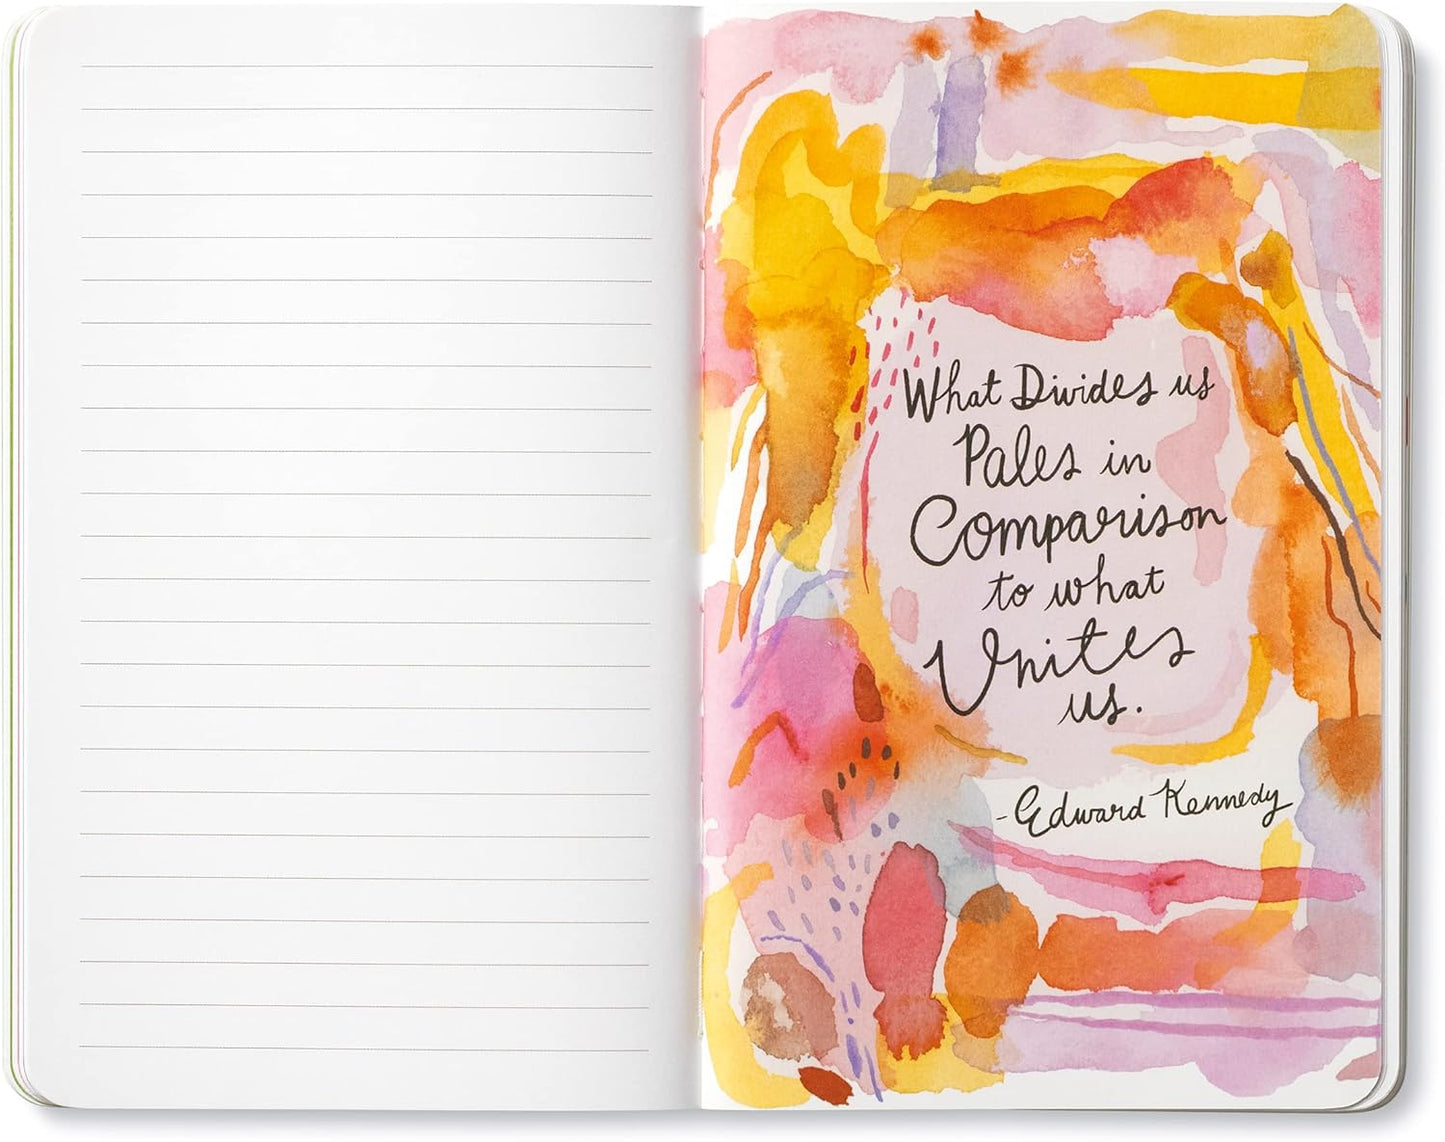 What Divides us
Pales in
Comparison
to what
Unites
us.
- Edward Kennedy